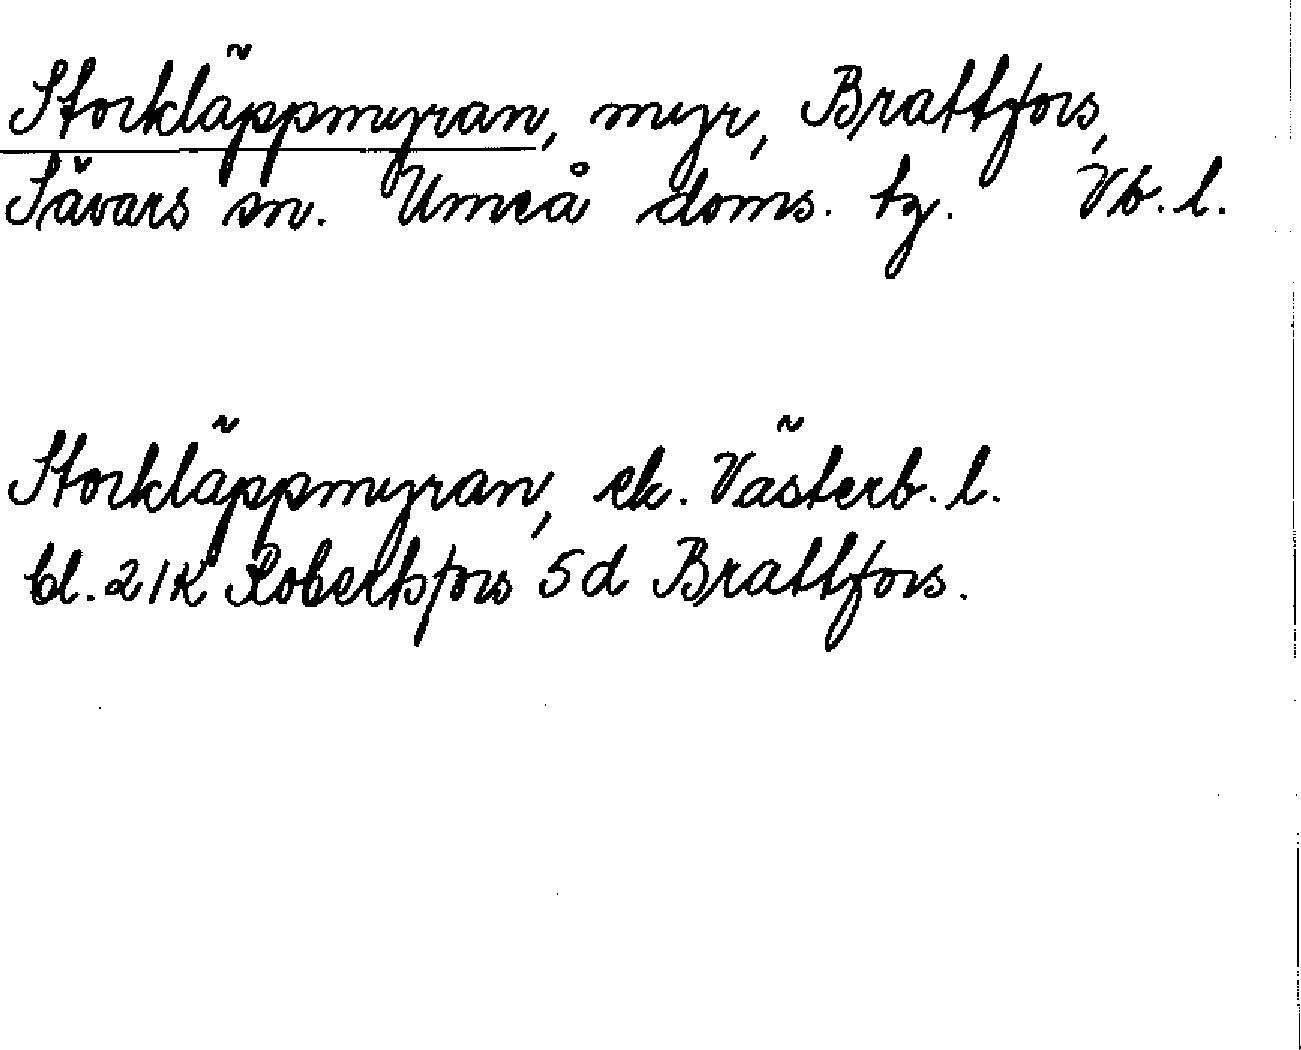 Storkläppmyran, myr, Brattfors,
Sävars sn. Umeå doms. tg. Vb. l.
Storkläppmyran, ek. Västerb. l.
bl. 21K Robertsfors 5d Brattfors.